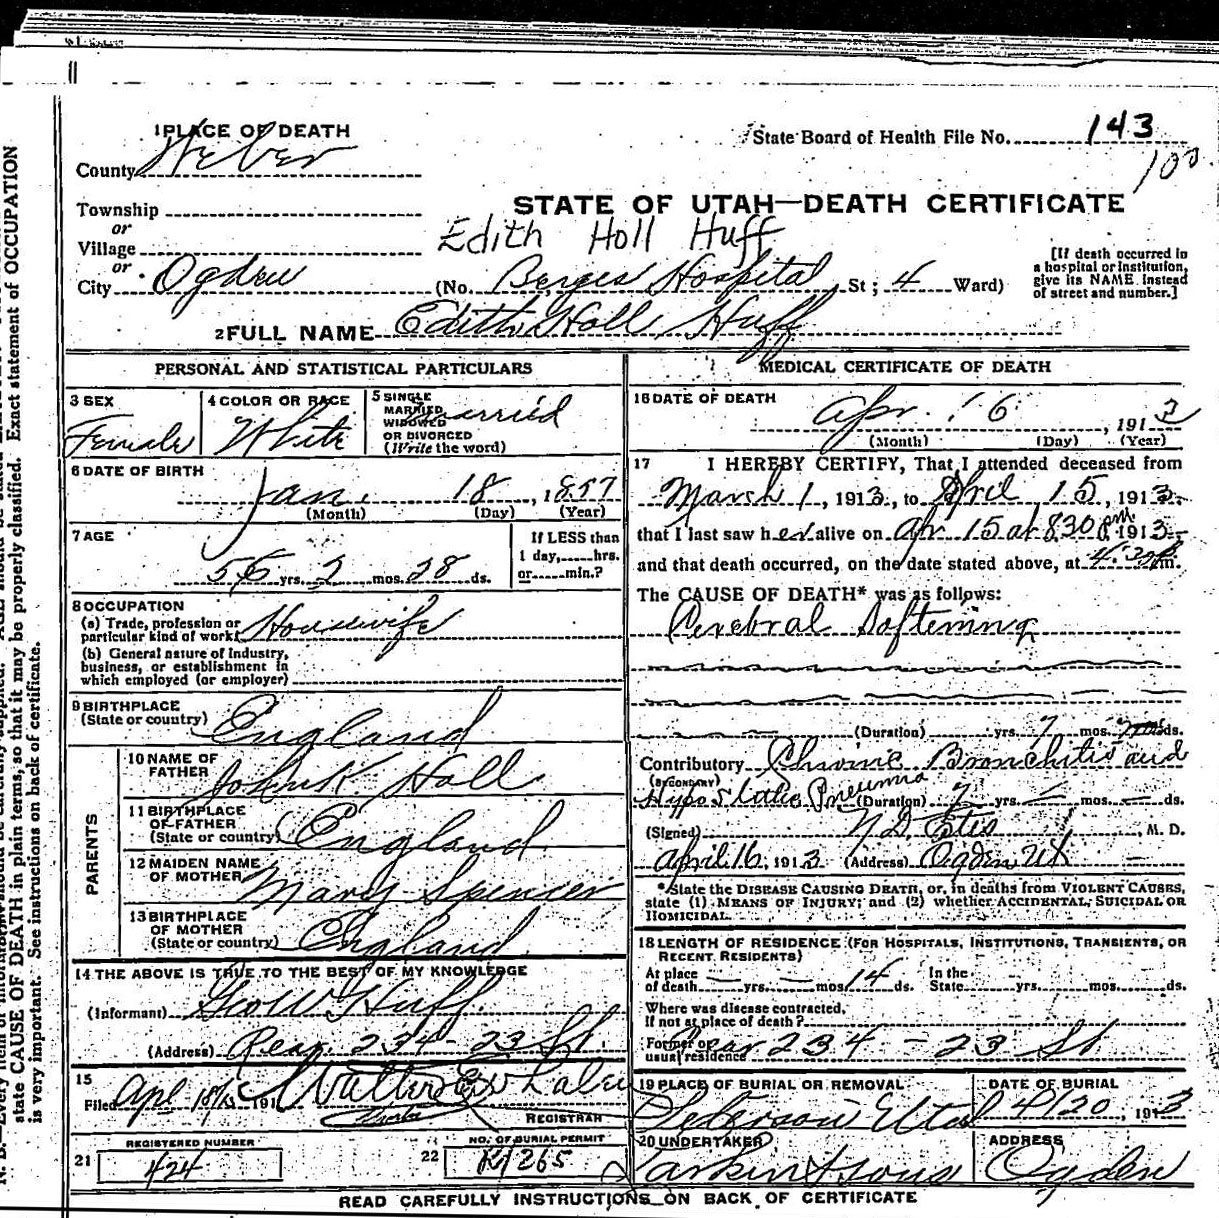 1 PLACE OF DEATH
State Board of Health File No. 143
County Weber
100
Township
STATE OF UTAH—DEATH CERTIFICATE
or
Village
Edith Holl Huff
or
City Ogden (No. Hospital St; 4 Ward)
[If death occurred in
a hospital or institution,
give its NAME instead
of street and number.]
2 FULL NAME Edith Holl Huff
PERSONAL AND STATISTICAL PARTICULARS
3 SEX
Female
4 COLOR OR RACE
White
5 SINGLE
MARRIED
WIDOWED
OR DIVORCED
(Write the word)
Married
6 DATE OF BIRTH
Jan. 18, 1857
(Month) (Day) (Year)
7 AGE
56 yrs. 2 mos. 28 ds.
If LESS than
1 day, hrs.
or min.?
8 OCCUPATION
(a) Trade, profession or
particular kind of work Housewife
(b) General nature of Industry,
business, or establishment in
which employed (or employer)
9 BIRTHPLACE
(State or country) England
PARENTS
10 NAME OF
FATHER John K Holl
11 BIRTHPLACE
OF FATHER
(State or country) England
12 MAIDEN NAME
OF MOTHER Mary Spencer
13 BIRTHPLACE
OF MOTHER
(State or country) England
14 THE ABOVE IS TRUE TO THE BEST OF MY KNOWLEDGE
(Informant) Geo W Huff
(Address) Rear 234 - 23 St.
15
Filed Apl 18/13 191 Walter E Whalen
REGISTRAR
REGISTERED NUMBER
21 424
NO. OF BURIAL PERMIT
22 K1265
MEDICAL CERTIFICATE OF DEATH
16 DATE OF DEATH
Apr. 16, 1913
(Month) (Day) (Year)
17 I HEREBY CERTIFY, That I attended deceased from
March 1, 1913, to April 15, 1913.
that I last saw her alive on Apr. 15 at 8:30 pm 1913
and that death occurred, on the date stated above, at 4:30 m.
The CAUSE OF DEATH* was as follows:
Cerebral Softening
(Duration) yrs. 7 mos. ds.
Contributory Chronic Bronchitis and
(SECONDARY)
Hypostatic Pneumonia (Duration) 2 yrs. mos. ds.
(Signed) Estes, M. D.
April 16, 1913 (Address) Ogden Ut
*State the DISEASE CAUSING DEATH, or, in deaths from VIOLENT CAUSES,
state (1) MEANS OF INJURY; and (2) whether ACCIDENTAL, SUICIDAL OR
HOMICIDAL.
18 LENGTH OF RESIDENCE (FOR HOSPITALS, INSTITUTIONS, TRANSIENTS, OR
RECENT RESIDENTS)
At place
of death yrs. mos. 14 ds.
In the
State yrs. mos. ds.
Where was disease contracted,
If not at place of death?
Former or
usual residence Rear 234 - 23 St
19 PLACE OF BURIAL OR REMOVAL
Peterson Utah
DATE OF BURIAL
4/20, 1913
20 UNDERTAKER
Larkin & Sons
ADDRESS
Ogden
READ CAREFULLY INSTRUCTIONS ON BACK OF CERTIFICATE
state CAUSE OF DEATH in plain terms, so that it may be properly classified. Exact statement of OCCUPATION
is very important. See instructions on back of certificate.